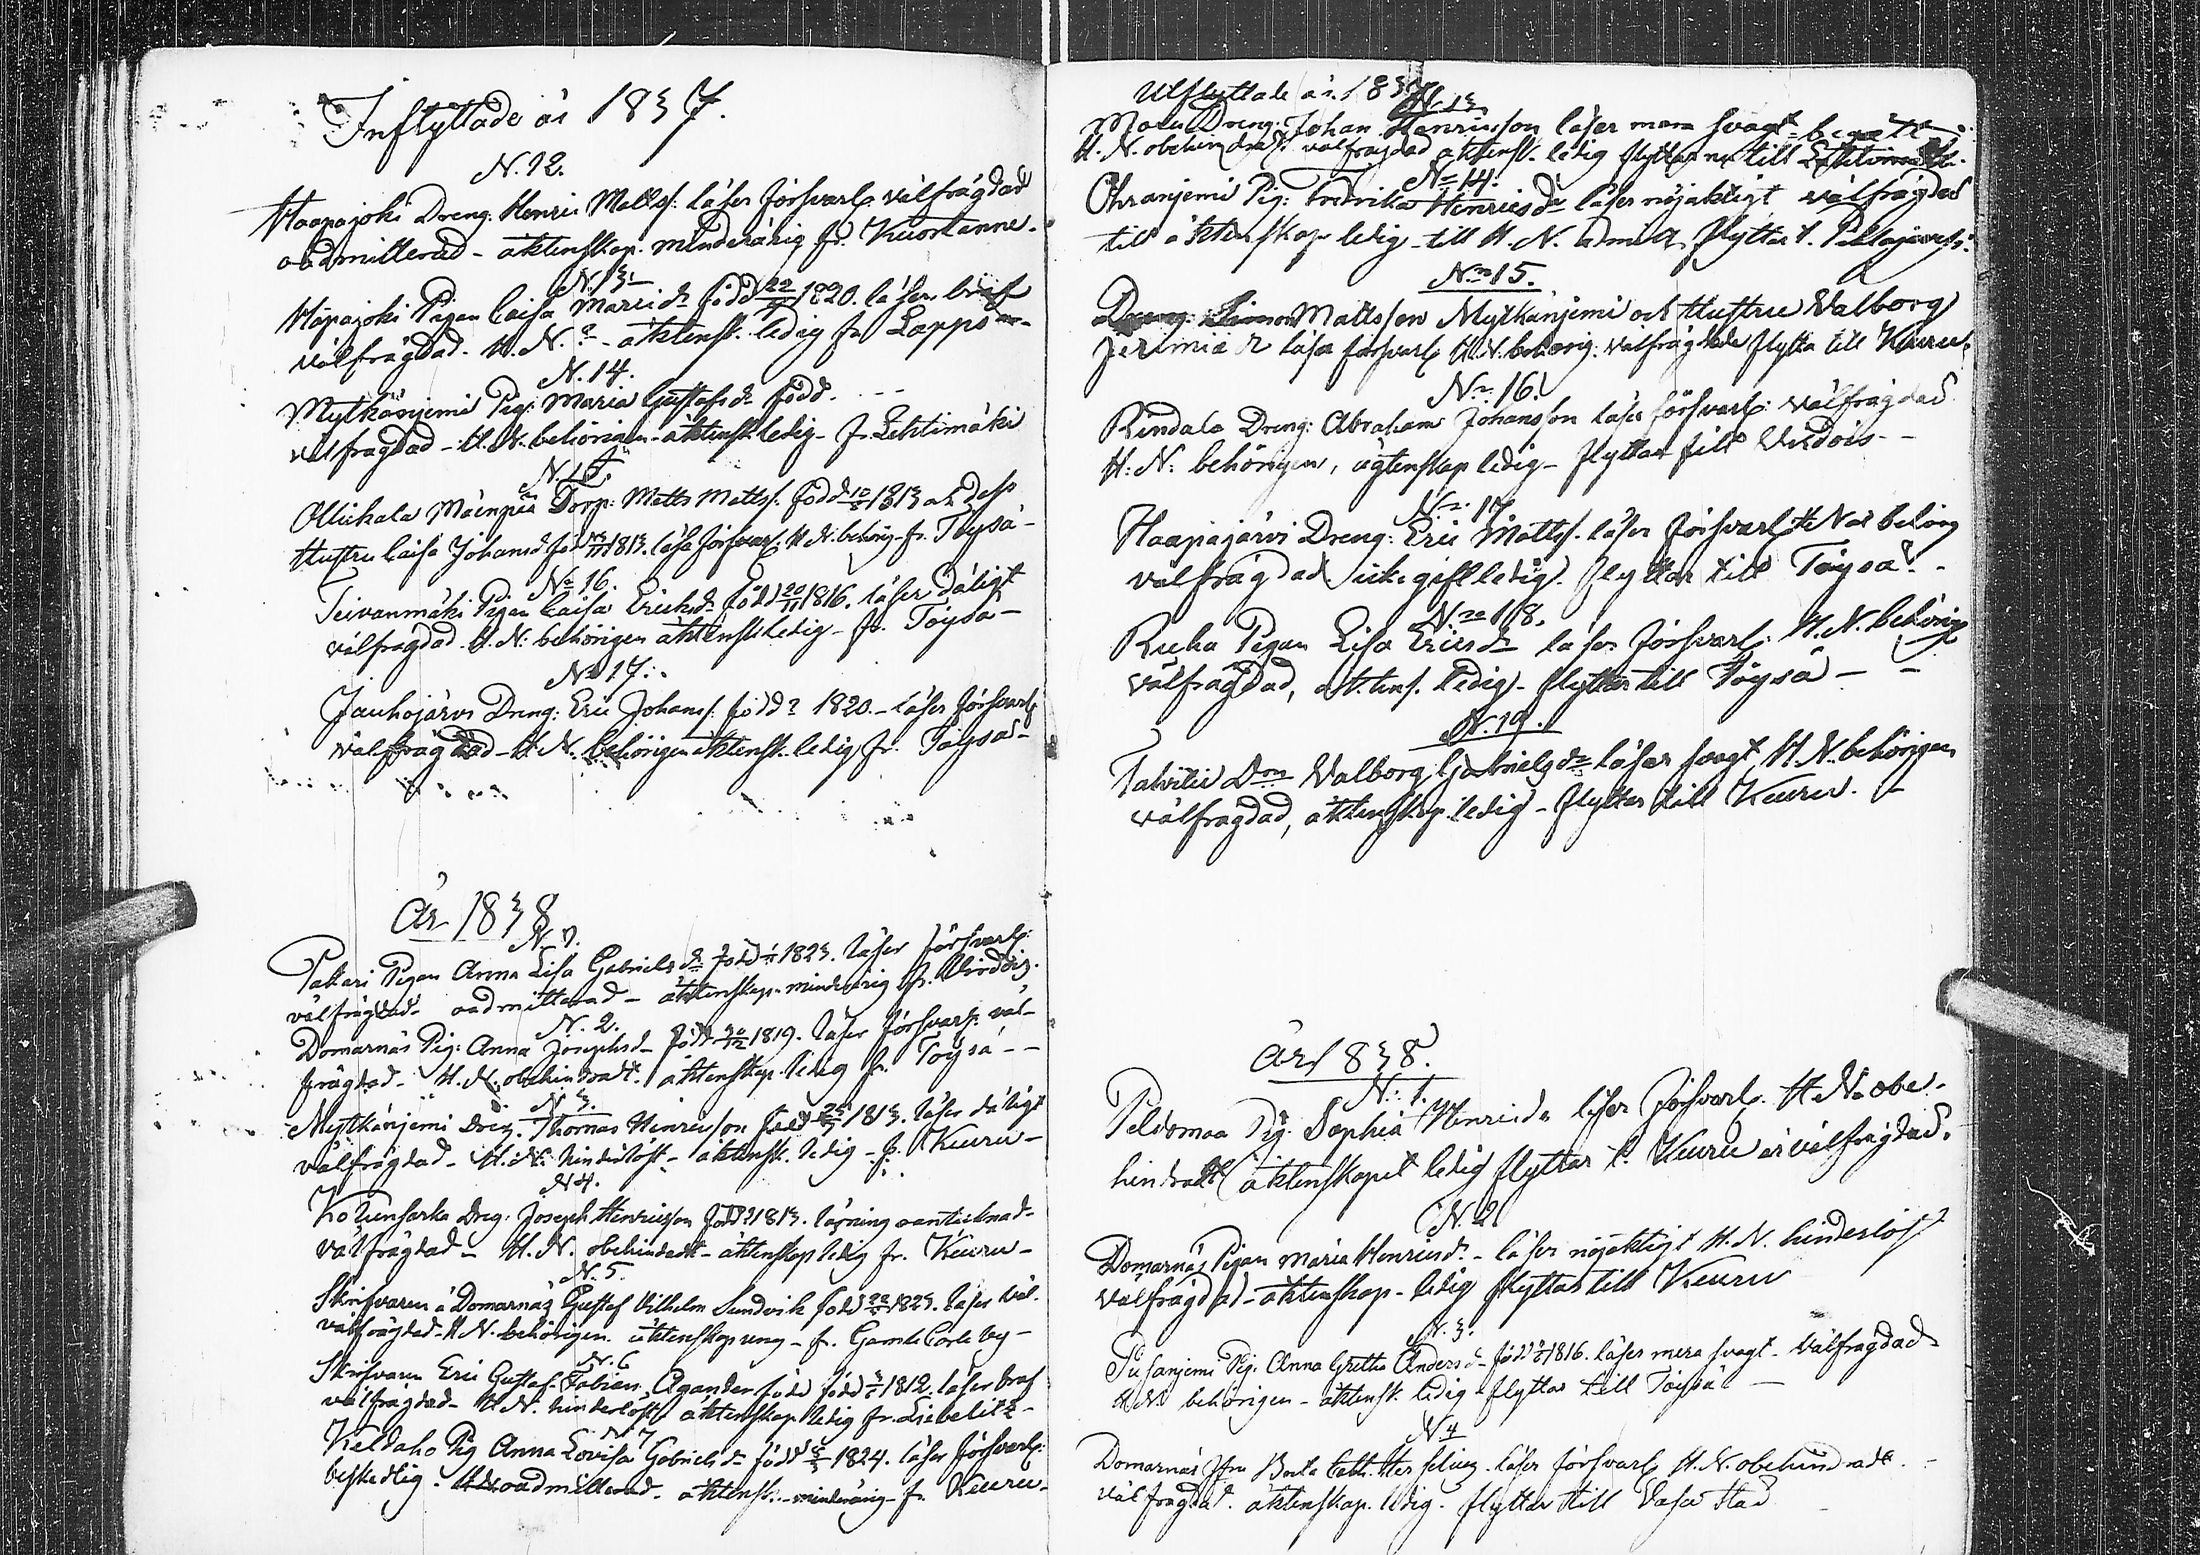 Inflyttade år 1837.
N. 12.
Haapajoki Dreng: Henric Matts: läser försvarl. välfrägdad
oadmitterad - äktenskap. minderårig fr. Kuortanne.
N. 13
Hapajoki Pigan Caisa Mariæ dr född 22 1820. läser braf
välfrägdad. H. N. ? - äktensk. ledig fr Lappo -
N. 14.
Mytkänjemi Pig: Maria Gustafsdr född. - -
välfragdad - H. N. behörigen - äktensk. ledig - fr. Lehtimäki
N. 15.
Ollickala Mäenpää Torp: Matts Matts. född 1813 och dess
Hustru Caisa Johansd. föd 1813. läsa försvarl. H. N. behörig. fr. Töysä -
No 16.
Teivanmäki Pigan Caisa Ericksdr född 20 1816. läser dåligt
välfragdad. H. N. behörigen äktensk. ledig - fr. Töysä -
No 17.
Jauhojärvi Dreng: Eric Johans. född ? 1820. - läser försvarl.
välfrägdad - H. N. behörigen äktensk. ledig fr. Töysä -
År 1838
N. 1.
Pakari Pigan Anna Lisa Gabrielsdr född 1823. läser försvarl:
välfrägdad - oadmitterad - äktenskap. minderårig fr. Virdois.
N. 2.
Domarnäs Pig: Anna Josephsd. född 1819. läser försvarl. väl-
frägdad - H. N. obehindradt. äktenskap. ledig fr. Töysä - -
N 3.
Mytkänjemi Dreng. Thomas Henricsson född 1813. läser dåligt
välfrägdad - H. N. hinderlöst - äktensk. ledig - fr. Keuru -
N 4.
Dreng. Joseph Henricsson född ? 1813. läsning oantecknad -
välfrägdad - H. N. obehindradt - äktenskap ledig fr. Keuru -
N. 5.
Skrifvaren å Domarnäs Gustaf Vilhelm Sundvik född 22 1823. läser väl.
välfrägdad - H N. behörigen. äktenskap ung - fr. Gamle Carleby -
N. 6
Skrifvaren Eric Gustaf Fabian Agander född född 1812. läser braf
välfrägdad - H. N. hinderlöst, äktenskap ledig fr. Liebelitz -
N 7
Keldaho Pig Anna Lovisa Gabrielsdr född 1824. läser försvarl:
beskedlig. oadmitterad - äktensk. - minderårig - fr. Keuru -
Utflyttade år. 1837
N. 13
Dreng: Johan Henricsson läser mera svagt
H. N. obehindradt. välfragdad äktensk. ledig flyttar nu till
No 14.
Ohranjemi Pig: Fredrika Henricsdr läser nöjaktigt välfrägdad
till äktenskap ledig - till H. N. admitt. flyttar t.
No 15.
Dreng: Simon Mattsson Mytkänjemi och Hustru Valborg
Jeremiædr läsa försvarl. H. N. behörig: välfrägdade flytta till Keuru.
No. 16.
Rindala Dreng: Abraham Johansson läser försvarl: välfrägdad
H: N: behörigen, ägtenskap ledig - flyttar till Virdois - -
No. 17
Haapajärvi Dreng: Eric Matts. läser försvarl. H N at behörig
välfrägdad icke gift ledig. flyttar till Töysä. -
No 18.
Pigan Lisa Ericsdr läser försvarl: H. N. behörig
välfrägdad, äktens. ledig - flyttar till Töysä - -
N. 19.
Valborg Gabrielsdr läser svagt, H. N. behörigen
välfragdad, äktenskap. ledig - flyttar till Keuru. -
År 1838.
N: 1.
Peldomaa Pig. Sophia Henricsdr läser försvarl. H. N. obe-
hindradt äktenskapet ledig flyttar t. Keuru är välfrägdad.
N. 2
Domarnäs Pigan Maria Henricsd. - läser nöjaktigt H. N. hinderlöst
välfrägdad - äktenskap - ledig flyttar till Keuru
N. 3.
Pig. Anna Gretha Andersd. född 1816. läser mera svagt - välfrägdad
H. N. behörigen - äktensk. ledig flyttar till Töysä -
N 4
Domarnäs Jfru Cath. läser försvarl H. N. obehindradt. -
välfrägdad. äktenskap. ledig. flyttar till Vasa Stad